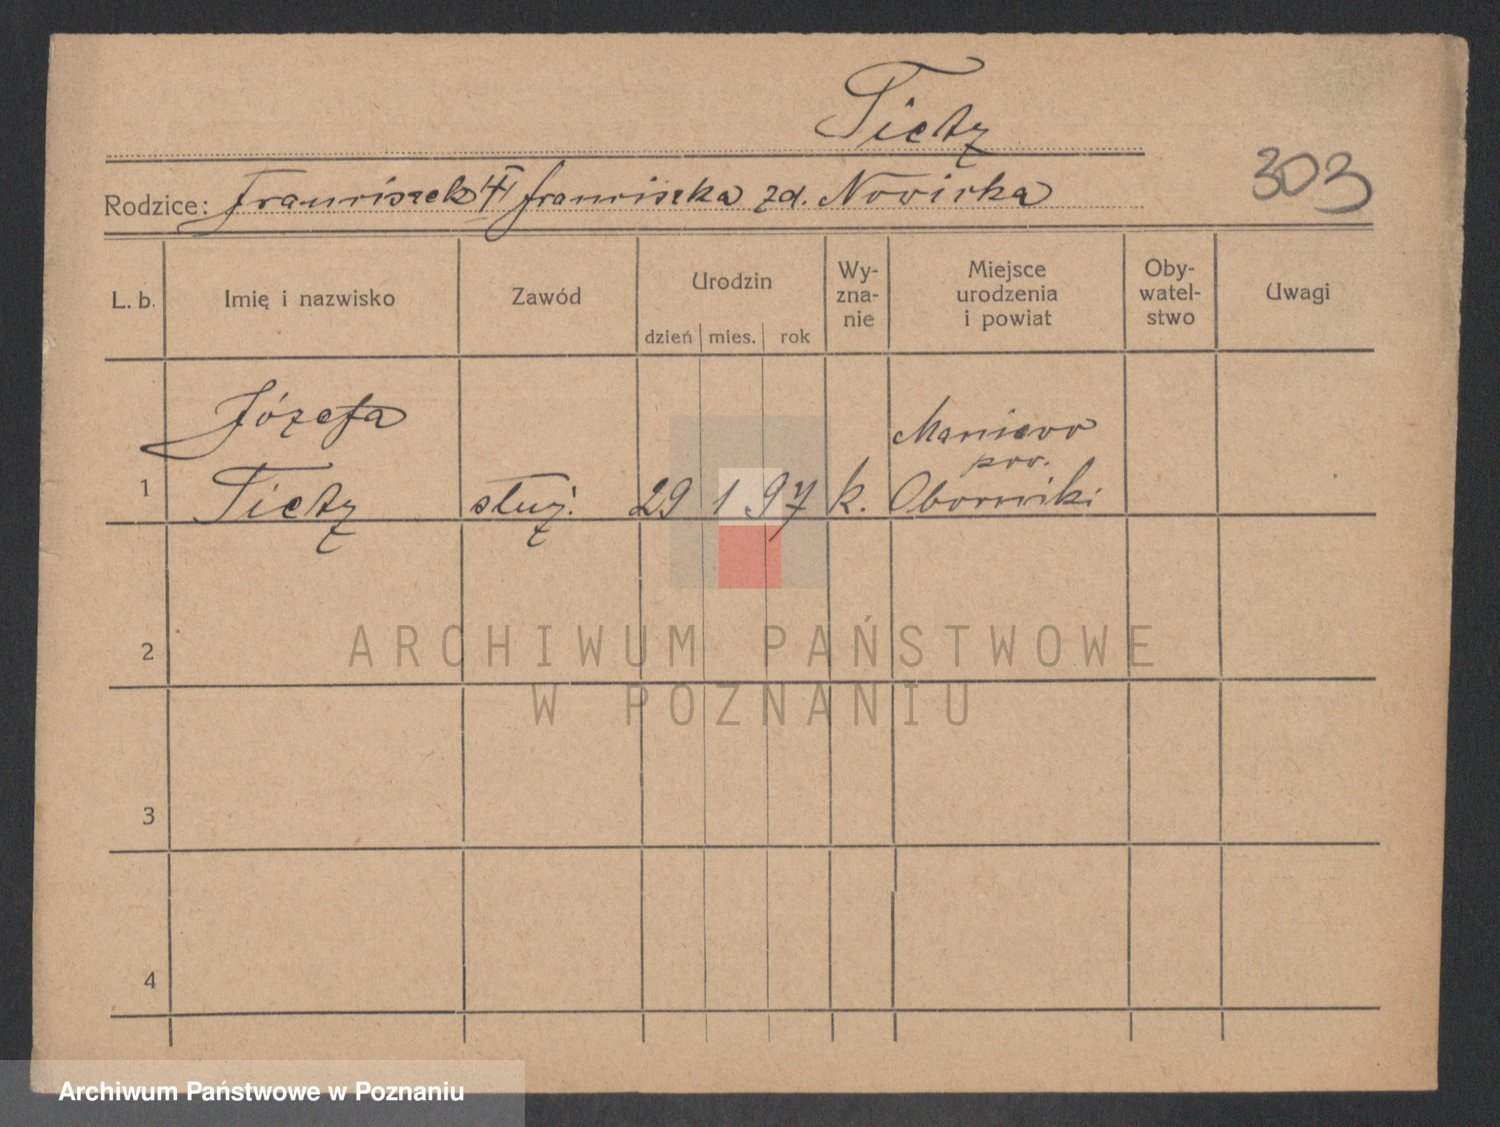 Tietz
303
Rodzice: Franciszek i Franciszka zd. Nowicka
L. b. Imię i nazwisko Zawód Urodzin Wy-zna-nie Miejsce urodzenia i powiat Oby-watel-stwo Uwagi
dzień mies. rok
Józefa Maniewo
pow.
1 Tietz służ. 29 1 97 k. Oborniki
2
ARCHIWUM PAŃSTWOWE
W POZNANIU
3
4
Archiwum Państwowe w Poznaniu